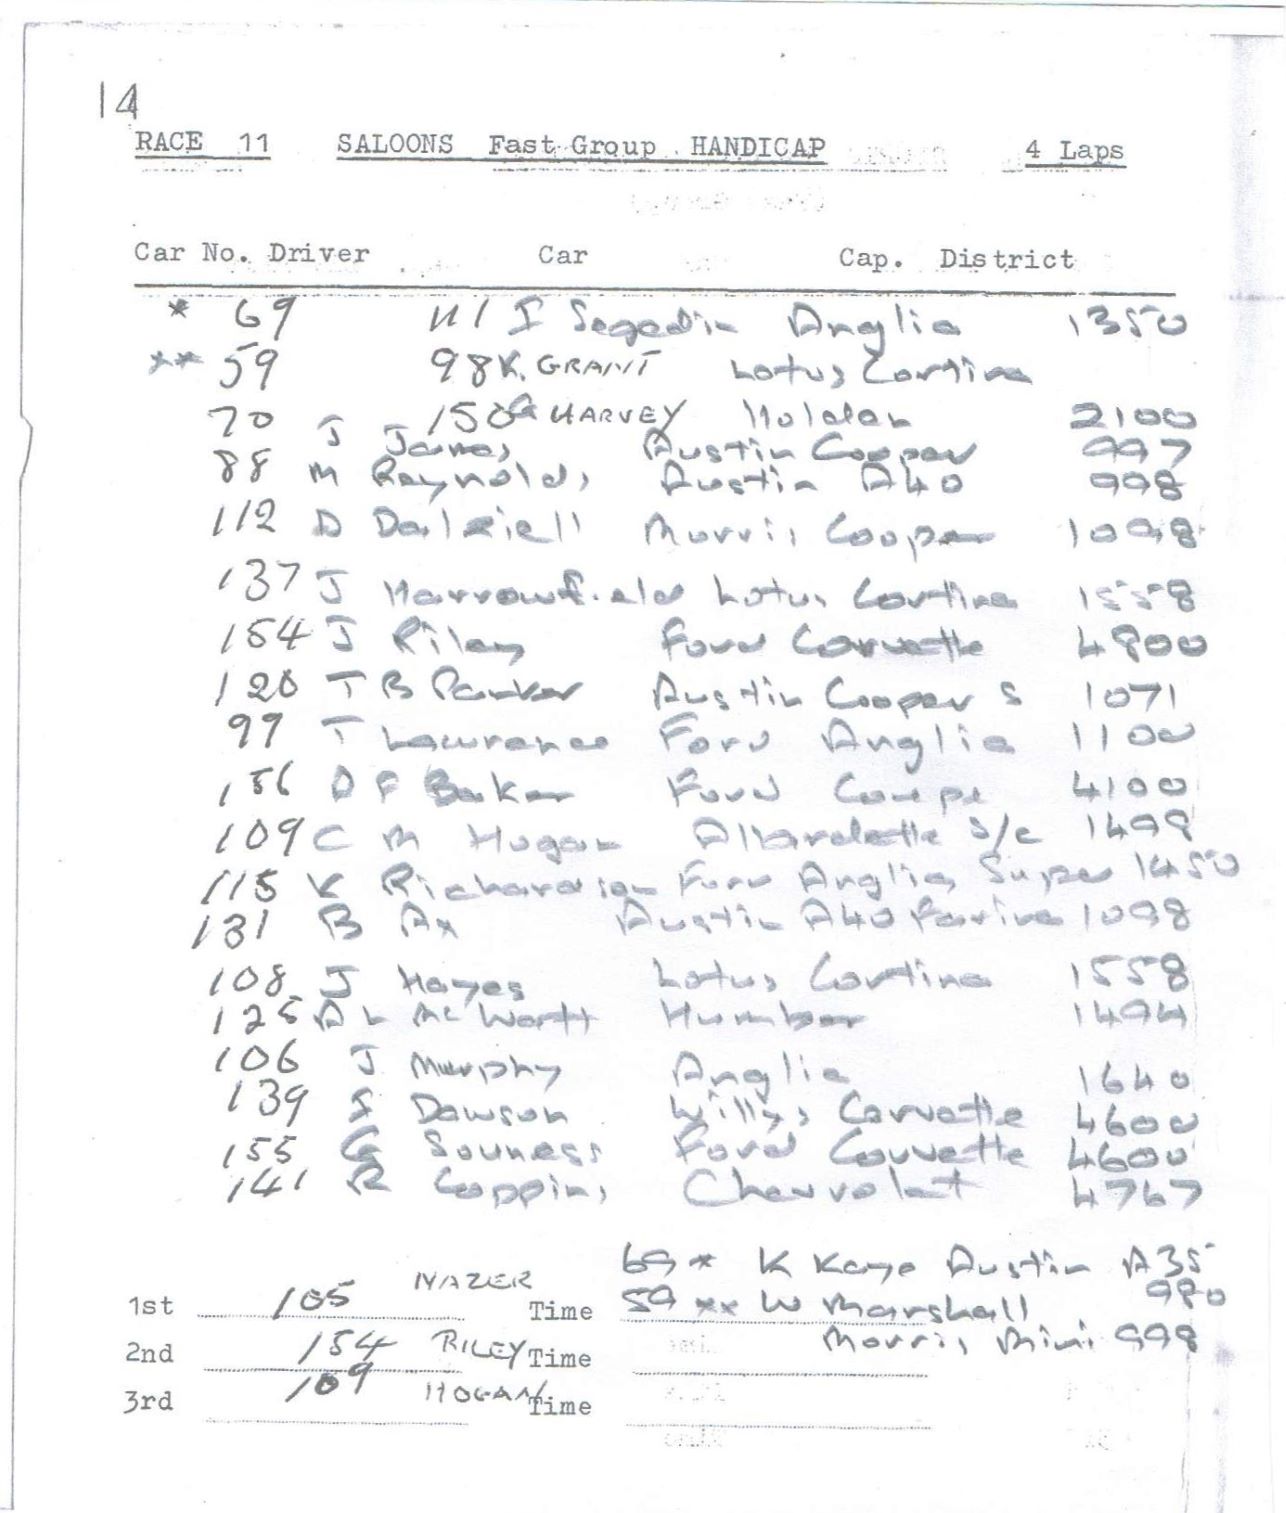 14
RACE 11 SALOONS Fast Group HANDICAP 4 Laps
Car No. Driver Car Cap. District
* 69 111 I Segedin Anglia 1350
** 59 98 K. GRANT Lotus Cortina
70 150 G HARVEY Holden 2100
J James Austin Cooper 997
88 M Reynolds Austin A40 998
112 D Dalziell Morris Cooper 1098
137 J Harrowfield Lotus Cortina 1558
154 J Riley Ford Corvette 4800
120 T B Parker Austin Cooper S 1071
99 T Lawrence Ford Anglia 1100
156 D F Baker Ford Coupe 4100
109 C M Hogan Allardette S/C 1498
115 K Richardson Ford Anglia Super 1450
131 B Ax Austin A40 Farina 1098
108 J Hayes Lotus Cortina 1558
125 A L McWatt Humber 1494
106 J Murphy Anglia 1640
139 S Dawson Willys Corvette 4600
155 G Souness Ford Corvette 4600
141 R Coppins Chevrolet 4767
69 * K Kaye Austin A35 980
1st 105 NAZER Time 59 ** W Marshall
Morris Mini 998
2nd 154 RILEY Time
3rd 109 HOGAN Time